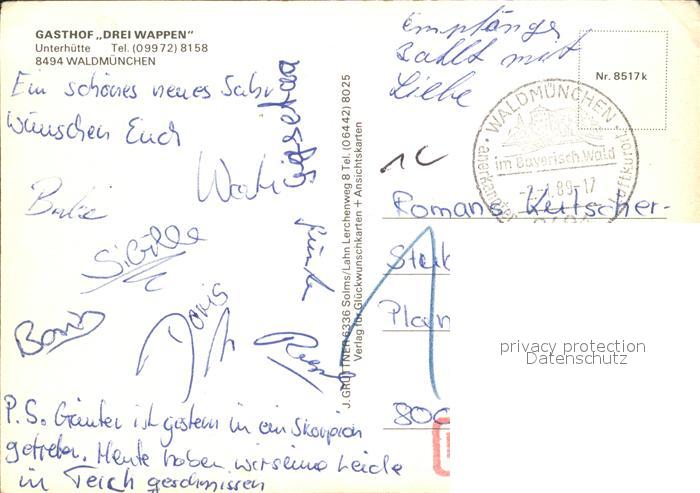 GASTHOF „DREI WAPPEN"
Unterhütte Tel. (09972) 8158
8494 WALDMÜNCHEN
Ein schönes neues Jahr
wünschen Euch
Sibille
Boris
Doris
Günter
P.S. Günter ist gestern in ein Skorpion
getreten. Heute haben wir seine Leiche
in Teich geschmissen
J. GRÜTTNER 6336 Solms/Lahn Lerchenweg 8 Tel. (06442) 8025
Verlag für Glückwunschkarten + Ansichtskarten
Empfänger
zahlt mit
Liebe
Nr. 8517k
WALDMÜNCHEN
im Bayerisch. Wald
anerkannter Luftkurort
89-17
Romans Kutscher-
800
privacy protection
Datenschutz